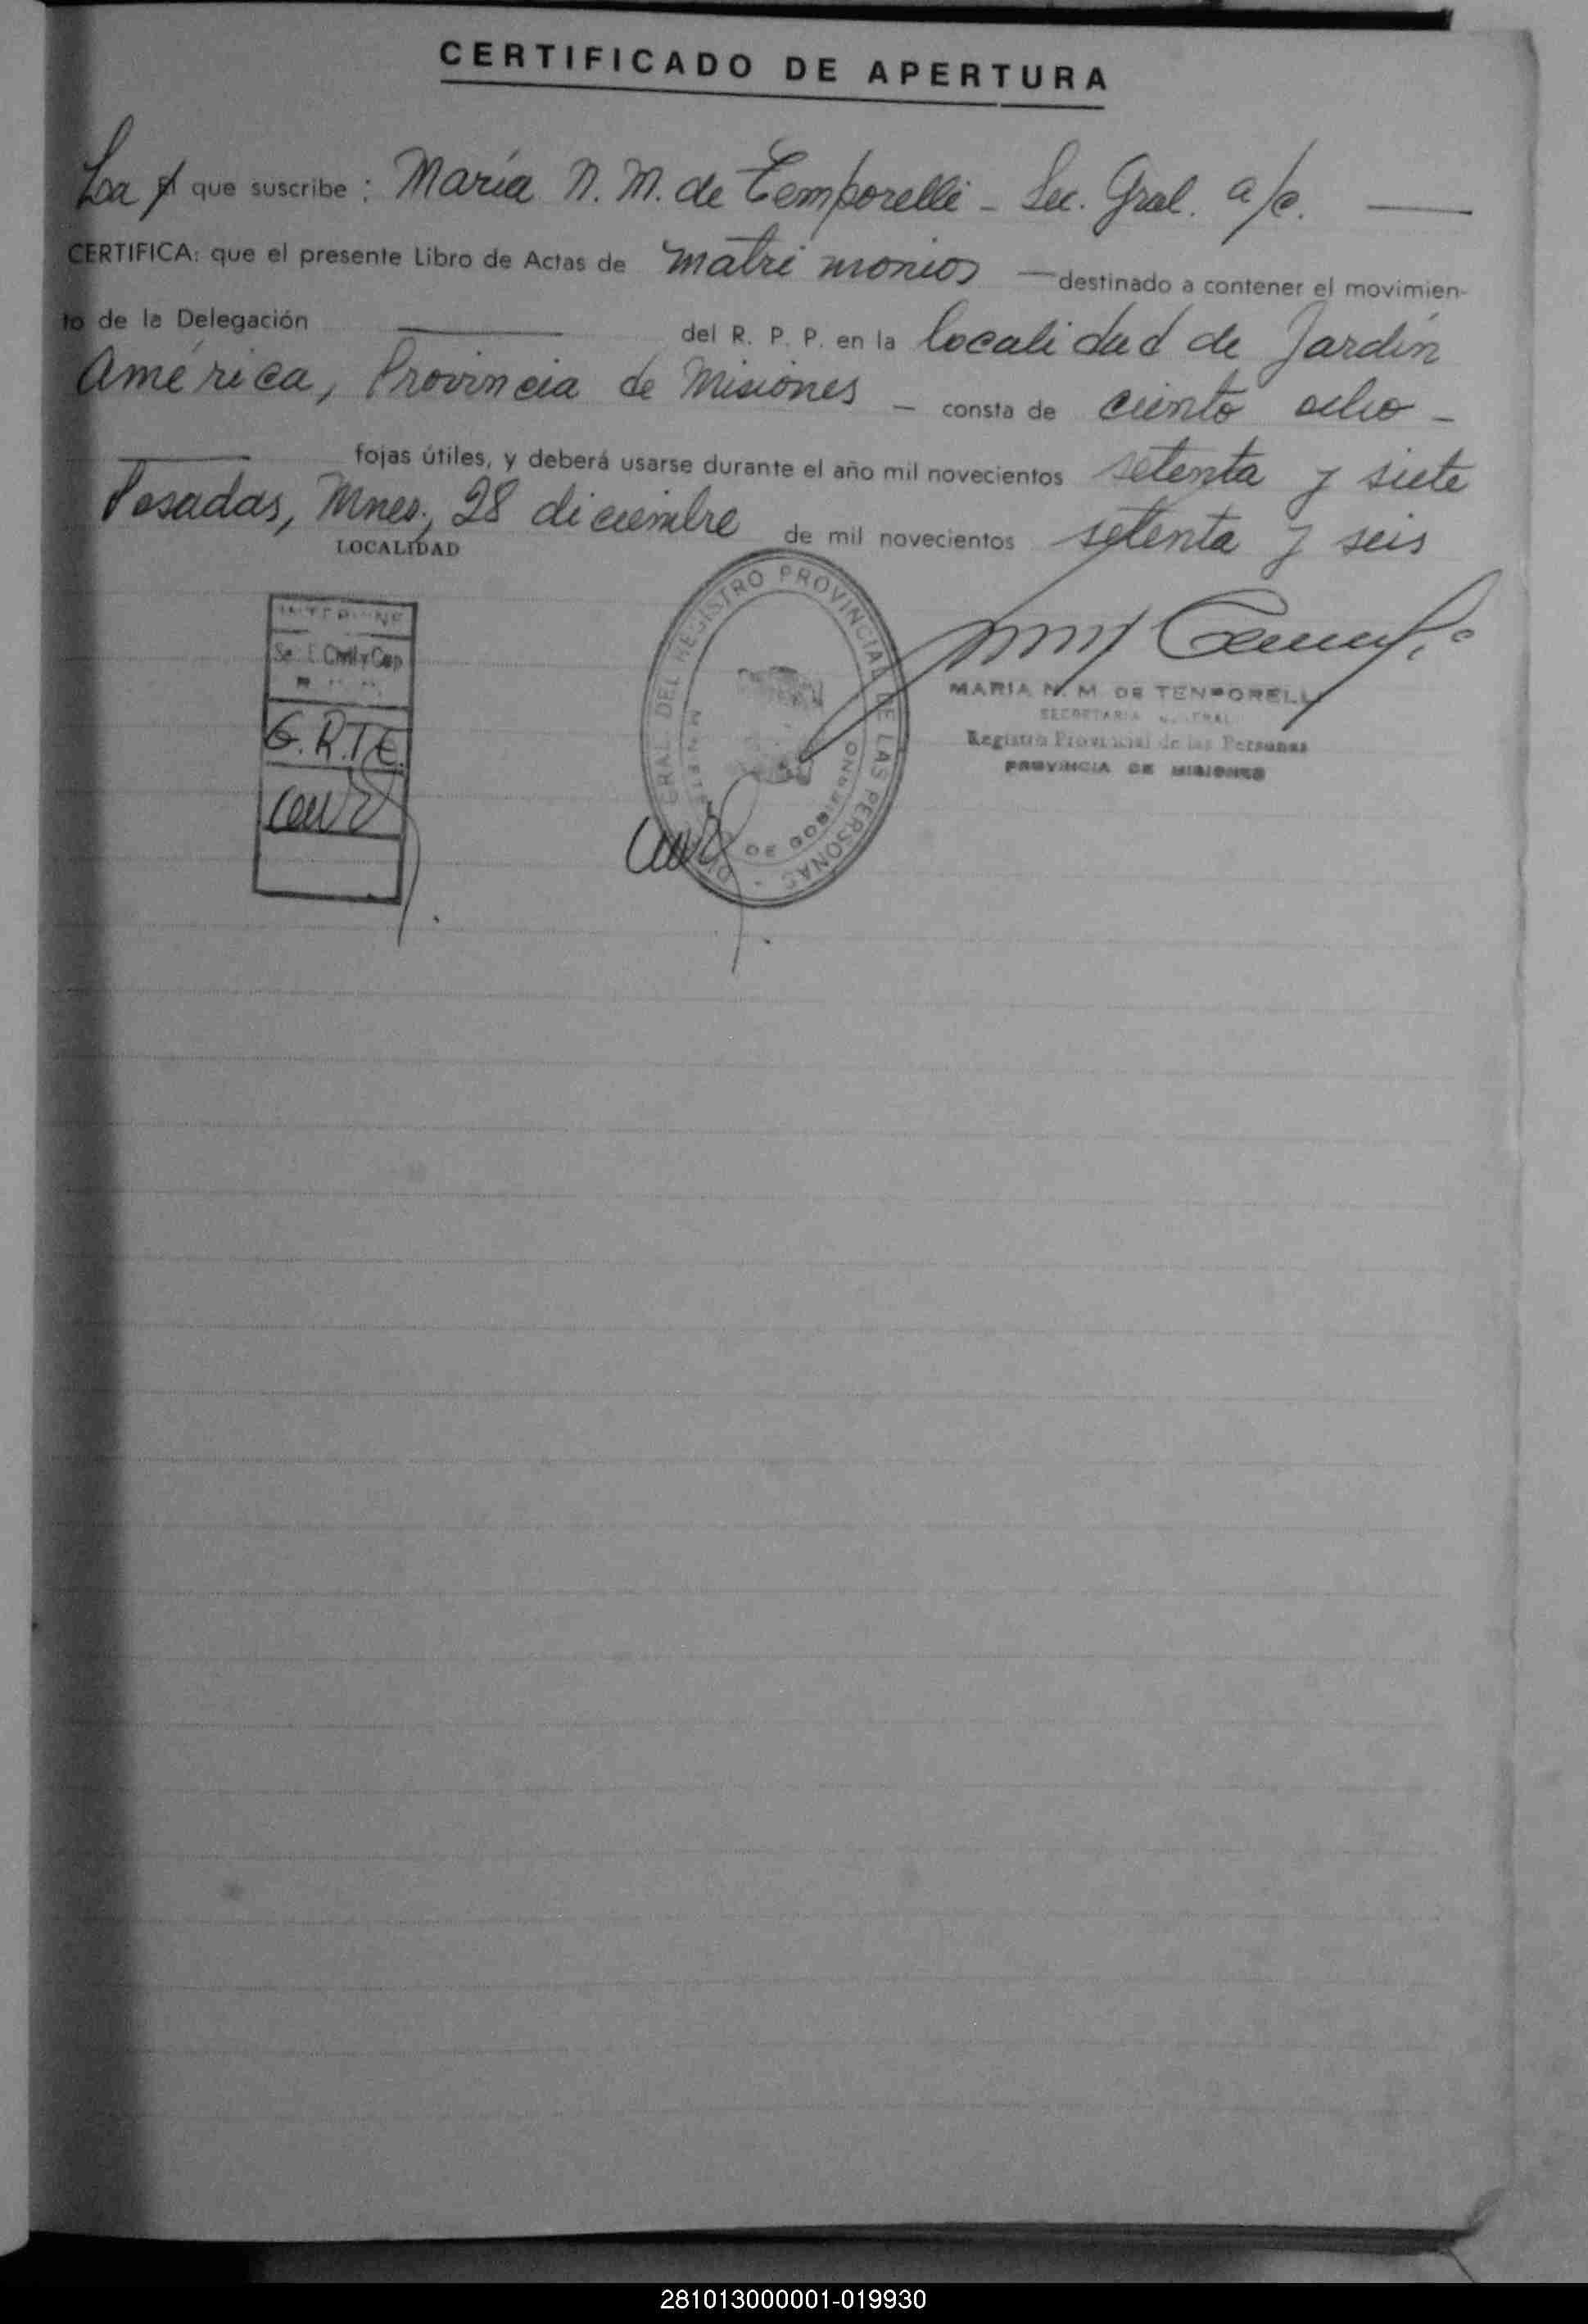 CERTIFICADO DE APERTURA
La que suscribe: María N. M. de Temporelli - Sec. Gral. a/c.
CERTIFICA: que el presente Libro de Actas de matrimonios — destinado a contener el movimien-
to de la Delegación — del R. P. P. en la localidad de Jardín
América, Provincia de Misiones — consta de ciento ocho -
fojas útiles, y deberá usarse durante el año mil novecientos setenta y siete
Posadas, Mnes., 28 diciembre de mil novecientos setenta y seis
LOCALIDAD
INTERVINE
C. Civil y Cap
G.R.T.E.
DEL REGISTRO PROVINCIAL DE LAS PERSONAS
DE GOBIERNO
MARIA N. M. DE TEMPORELLI
SECRETARIA GENERAL
Registro Provincial de las Personas
PROVINCIA DE MISIONES
281013000001-019930